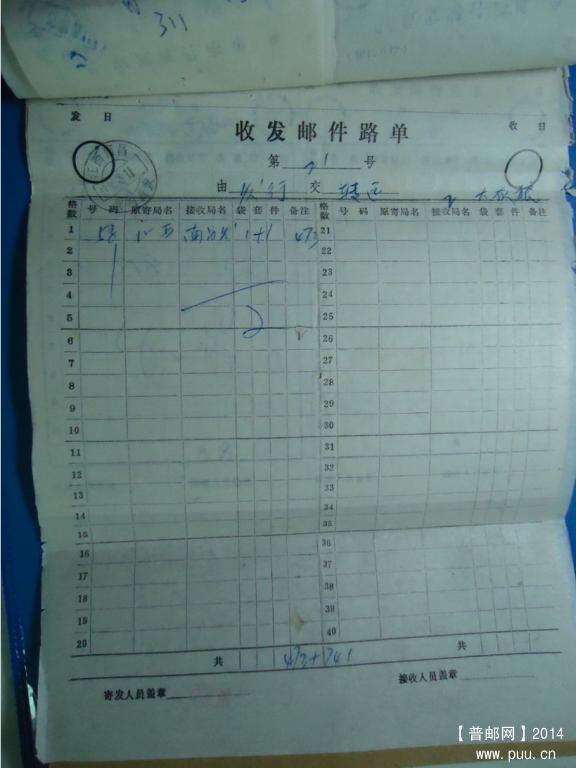 311
发 日
收发邮件路单
收 日
第 21 号
由 发行 交 转运
格数 号码 原寄局名 接收局名 袋 套 件 备注 格数 号码 原寄局名 接收局名 袋 套 件 备注
1 473 21
2 22
3 23
4 24
5 25
6 26
7 27
8 28
9 29
10 30
11 31
12 32
13 33
14 34
15 35
16 36
17 37
18 38
19 39
20 40
共 共
寄发人员盖章
接收人员盖章
【普邮网】2014
www.puu.cn